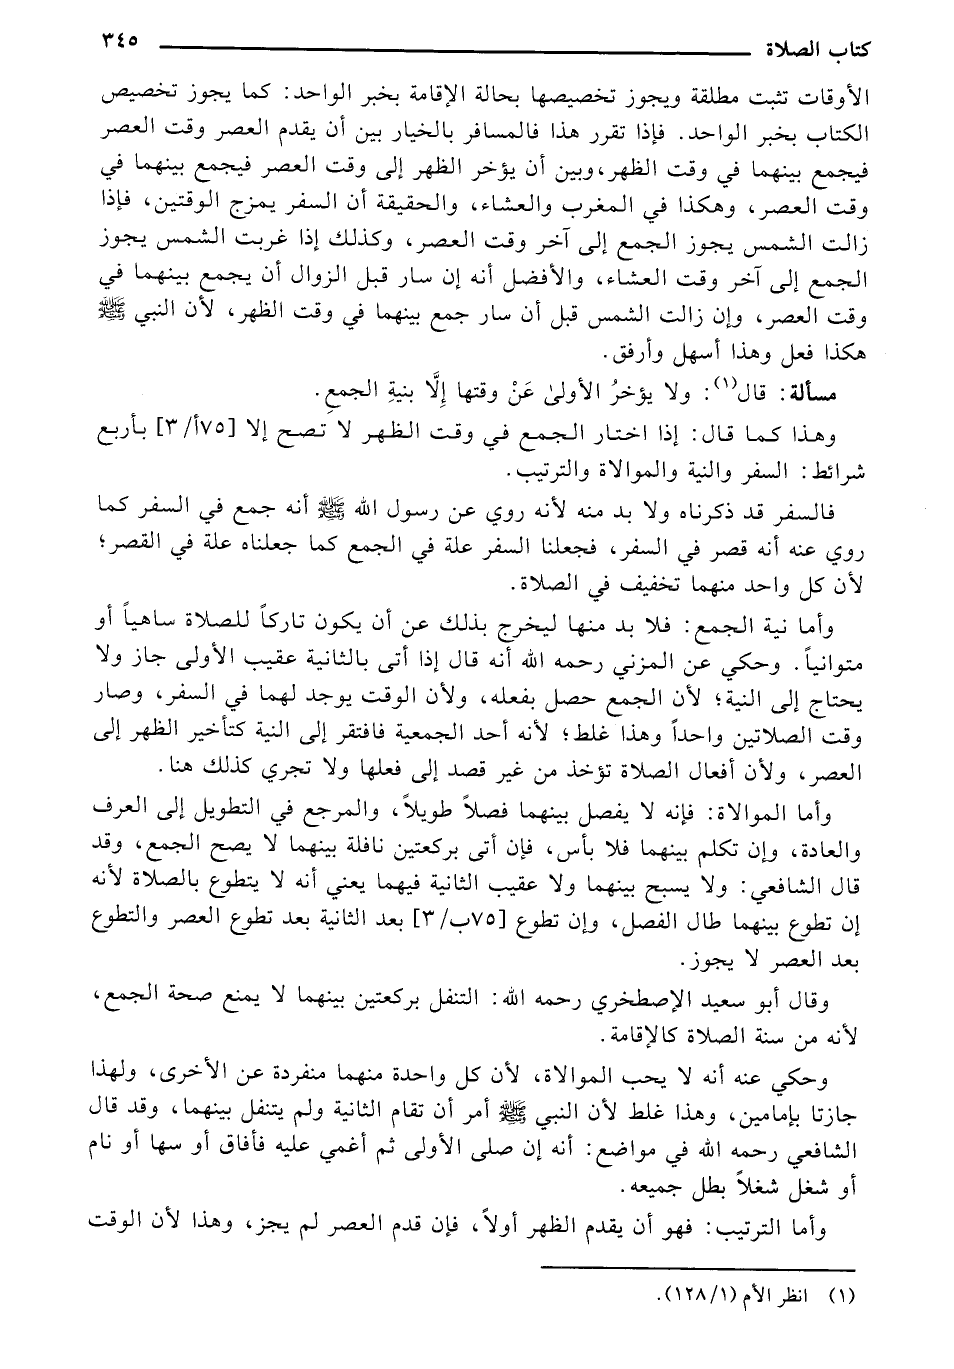 كتاب الصلاة ٣٤٥
الأوقات تثبت مطلقة ويجوز تخصيصها بحالة الإقامة بخبر الواحد: كما يجوز تخصيص
الكتاب بخبر الواحد. فإذا تقرر هذا فالمسافر بالخيار بين أن يقدم العصر وقت العصر
فيجمع بينهما في وقت الظهر، وبين أن يؤخر الظهر إلى وقت العصر فيجمع بينهما في
وقت العصر، وهكذا في المغرب والعشاء، والحقيقة أن السفر يمزج الوقتين، فإذا
زالت الشمس يجوز الجمع إلى آخر وقت العصر، وكذلك إذا غربت الشمس يجوز
الجمع إلى آخر وقت العشاء، والأفضل أنه إن سار قبل الزوال أن يجمع بينهما في
وقت العصر، وإن زالت الشمس قبل أن سار جمع بينهما في وقت الظهر، لأن النبي ﷺ
هكذا فعل وهذا أسهل وأرفق.
مسألة: قال(١): ولا يؤخرُ الأولىٰ عَنْ وقتها إِلَّا بنيةِ الجمعِ.
وهذا كما قال: إذا اختار الجمع في وقت الظهر لا تصح إلا [٧٥أ/٣] بأربع
شرائط: السفر والنية والموالاة والترتيب.
فالسفر قد ذكرناه ولا بد منه لأنه روي عن رسول الله ﷺ أنه جمع في السفر كما
روي عنه أنه قصر في السفر، فجعلنا السفر علة في الجمع كما جعلناه علة في القصر؛
لأن كل واحد منهما تخفيف في الصلاة.
وأما نية الجمع: فلا بد منها ليخرج بذلك عن أن يكون تاركاً للصلاة ساهياً أو
متوانياً. وحكي عن المزني رحمه الله أنه قال إذا أتى بالثانية عقيب الأولى جاز ولا
يحتاج إلى النية؛ لأن الجمع حصل بفعله، ولأن الوقت يوجد لهما في السفر، وصار
وقت الصلاتين واحداً وهذا غلط؛ لأنه أحد الجمعية فافتقر إلى النية كتأخير الظهر إلى
العصر، ولأن أفعال الصلاة تؤخذ من غير قصد إلى فعلها ولا تجري كذلك هنا.
وأما الموالاة: فإنه لا يفصل بينهما فصلاً طويلاً، والمرجع في التطويل إلى العرف
والعادة، وإن تكلم بينهما فلا بأس، فإن أتى بركعتين نافلة بينهما لا يصح الجمع، وقد
قال الشافعي: ولا يسبح بينهما ولا عقيب الثانية فيهما يعني أنه لا يتطوع بالصلاة لأنه
إن تطوع بينهما طال الفصل، وإن تطوع [٧٥ب/٣] بعد الثانية بعد تطوع العصر والتطوع
بعد العصر لا يجوز.
وقال أبو سعيد الإصطخري رحمه الله: التنفل بركعتين بينهما لا يمنع صحة الجمع،
لأنه من سنة الصلاة كالإقامة.
وحكي عنه أنه لا يحب الموالاة، لأن كل واحدة منهما منفردة عن الأخرى، ولهذا
جازتا بإمامين، وهذا غلط لأن النبي ﷺ أمر أن تقام الثانية ولم يتنفل بينهما، وقد قال
الشافعي رحمه الله في مواضع: أنه إن صلى الأولى ثم أغمي عليه فأفاق أو سها أو نام
أو شغل شغلاً بطل جميعه.
وأما الترتيب: فهو أن يقدم الظهر أولاً، فإن قدم العصر لم يجز، وهذا لأن الوقت
(١) انظر الأم (١٢٨/١).